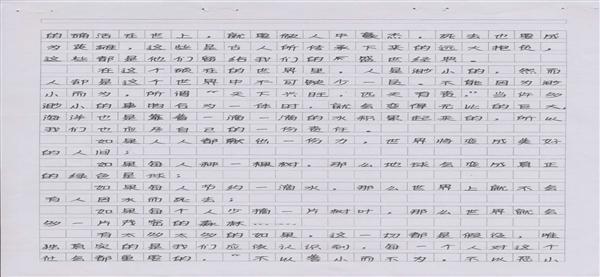 的确活在世上，就要做人中豪杰，死去也要成
为英雄，这些是古人所传承下来的远大抱负，
这些都是他们留给我们的盛世经典。
在这个硕大的世界里，人是渺小的，然而
人都是这个世界中不可缺少一员。不能因为渺
小而为，所谓“天下兴旺，匹夫有责”当许多
渺小的事物合为一体时，就会变得无比的巨大，
海洋也是靠着一滴一滴的水积累起来的，所以
我们也应尽自己的一份责任。
如果人人都献他一份力，世界将变成美好
的人间；
如果每人种一棵树，那么地球会变成真正
的绿色星球；
如果每人节约一滴水，那么世界上就不会
有人因水而死去；
如果每个人少摘一片树叶，那么世界就会
多一片茂密的森林………
有太多太多的如果，这一切都是假设，唯
独真实的是我们应该认识到，每一个人对这个
社会都重要的，“不以善小而不为，不以恶小